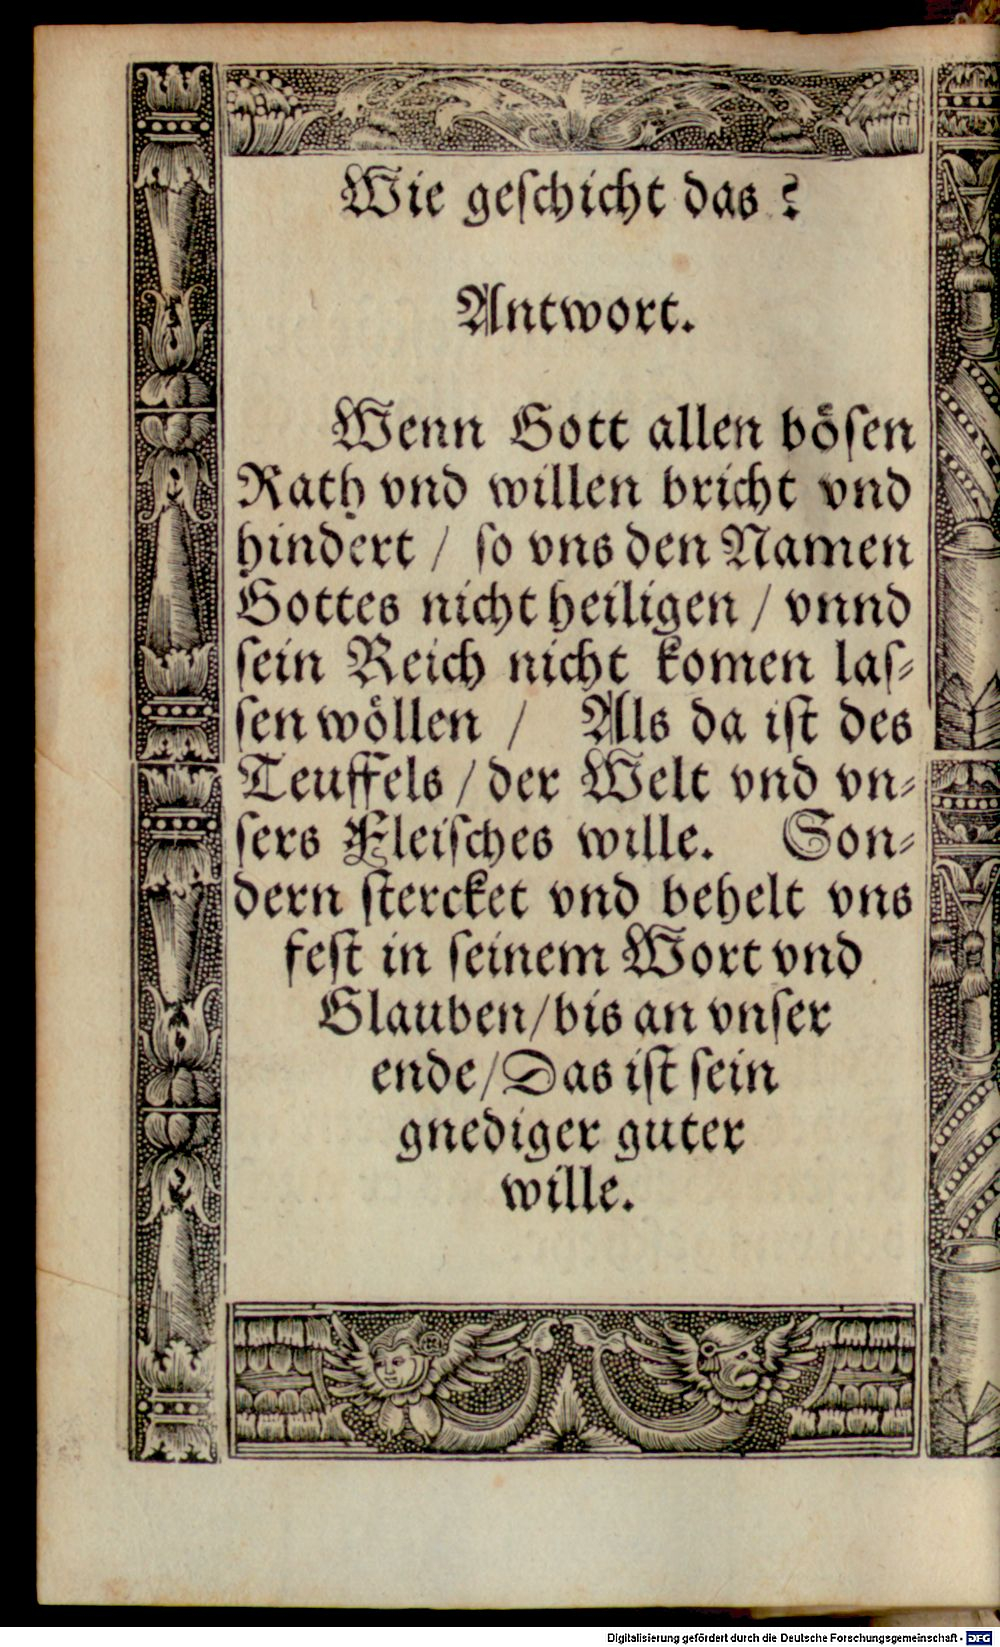 Wie geſchicht das?
Antwort.
Wenn Gott allen böſen
Rath vnd willen bricht vnd
hindert / ſo vns den Namen
Gottes nicht heiligen / vnnd
ſein Reich nicht komen laſ⸗
ſen wöllen / Als da iſt des
Teuffels / der Welt vnd vn⸗
ſers Fleiſches wille. Son⸗
dern ſtercket vnd behelt vns
feſt in ſeinem Wort vnd
Glauben / bis an vnſer
ende / Das iſt ſein
gnediger guter
wille.
Digitalisierung gefördert durch die Deutsche Forschungsgemeinschaft - DFG